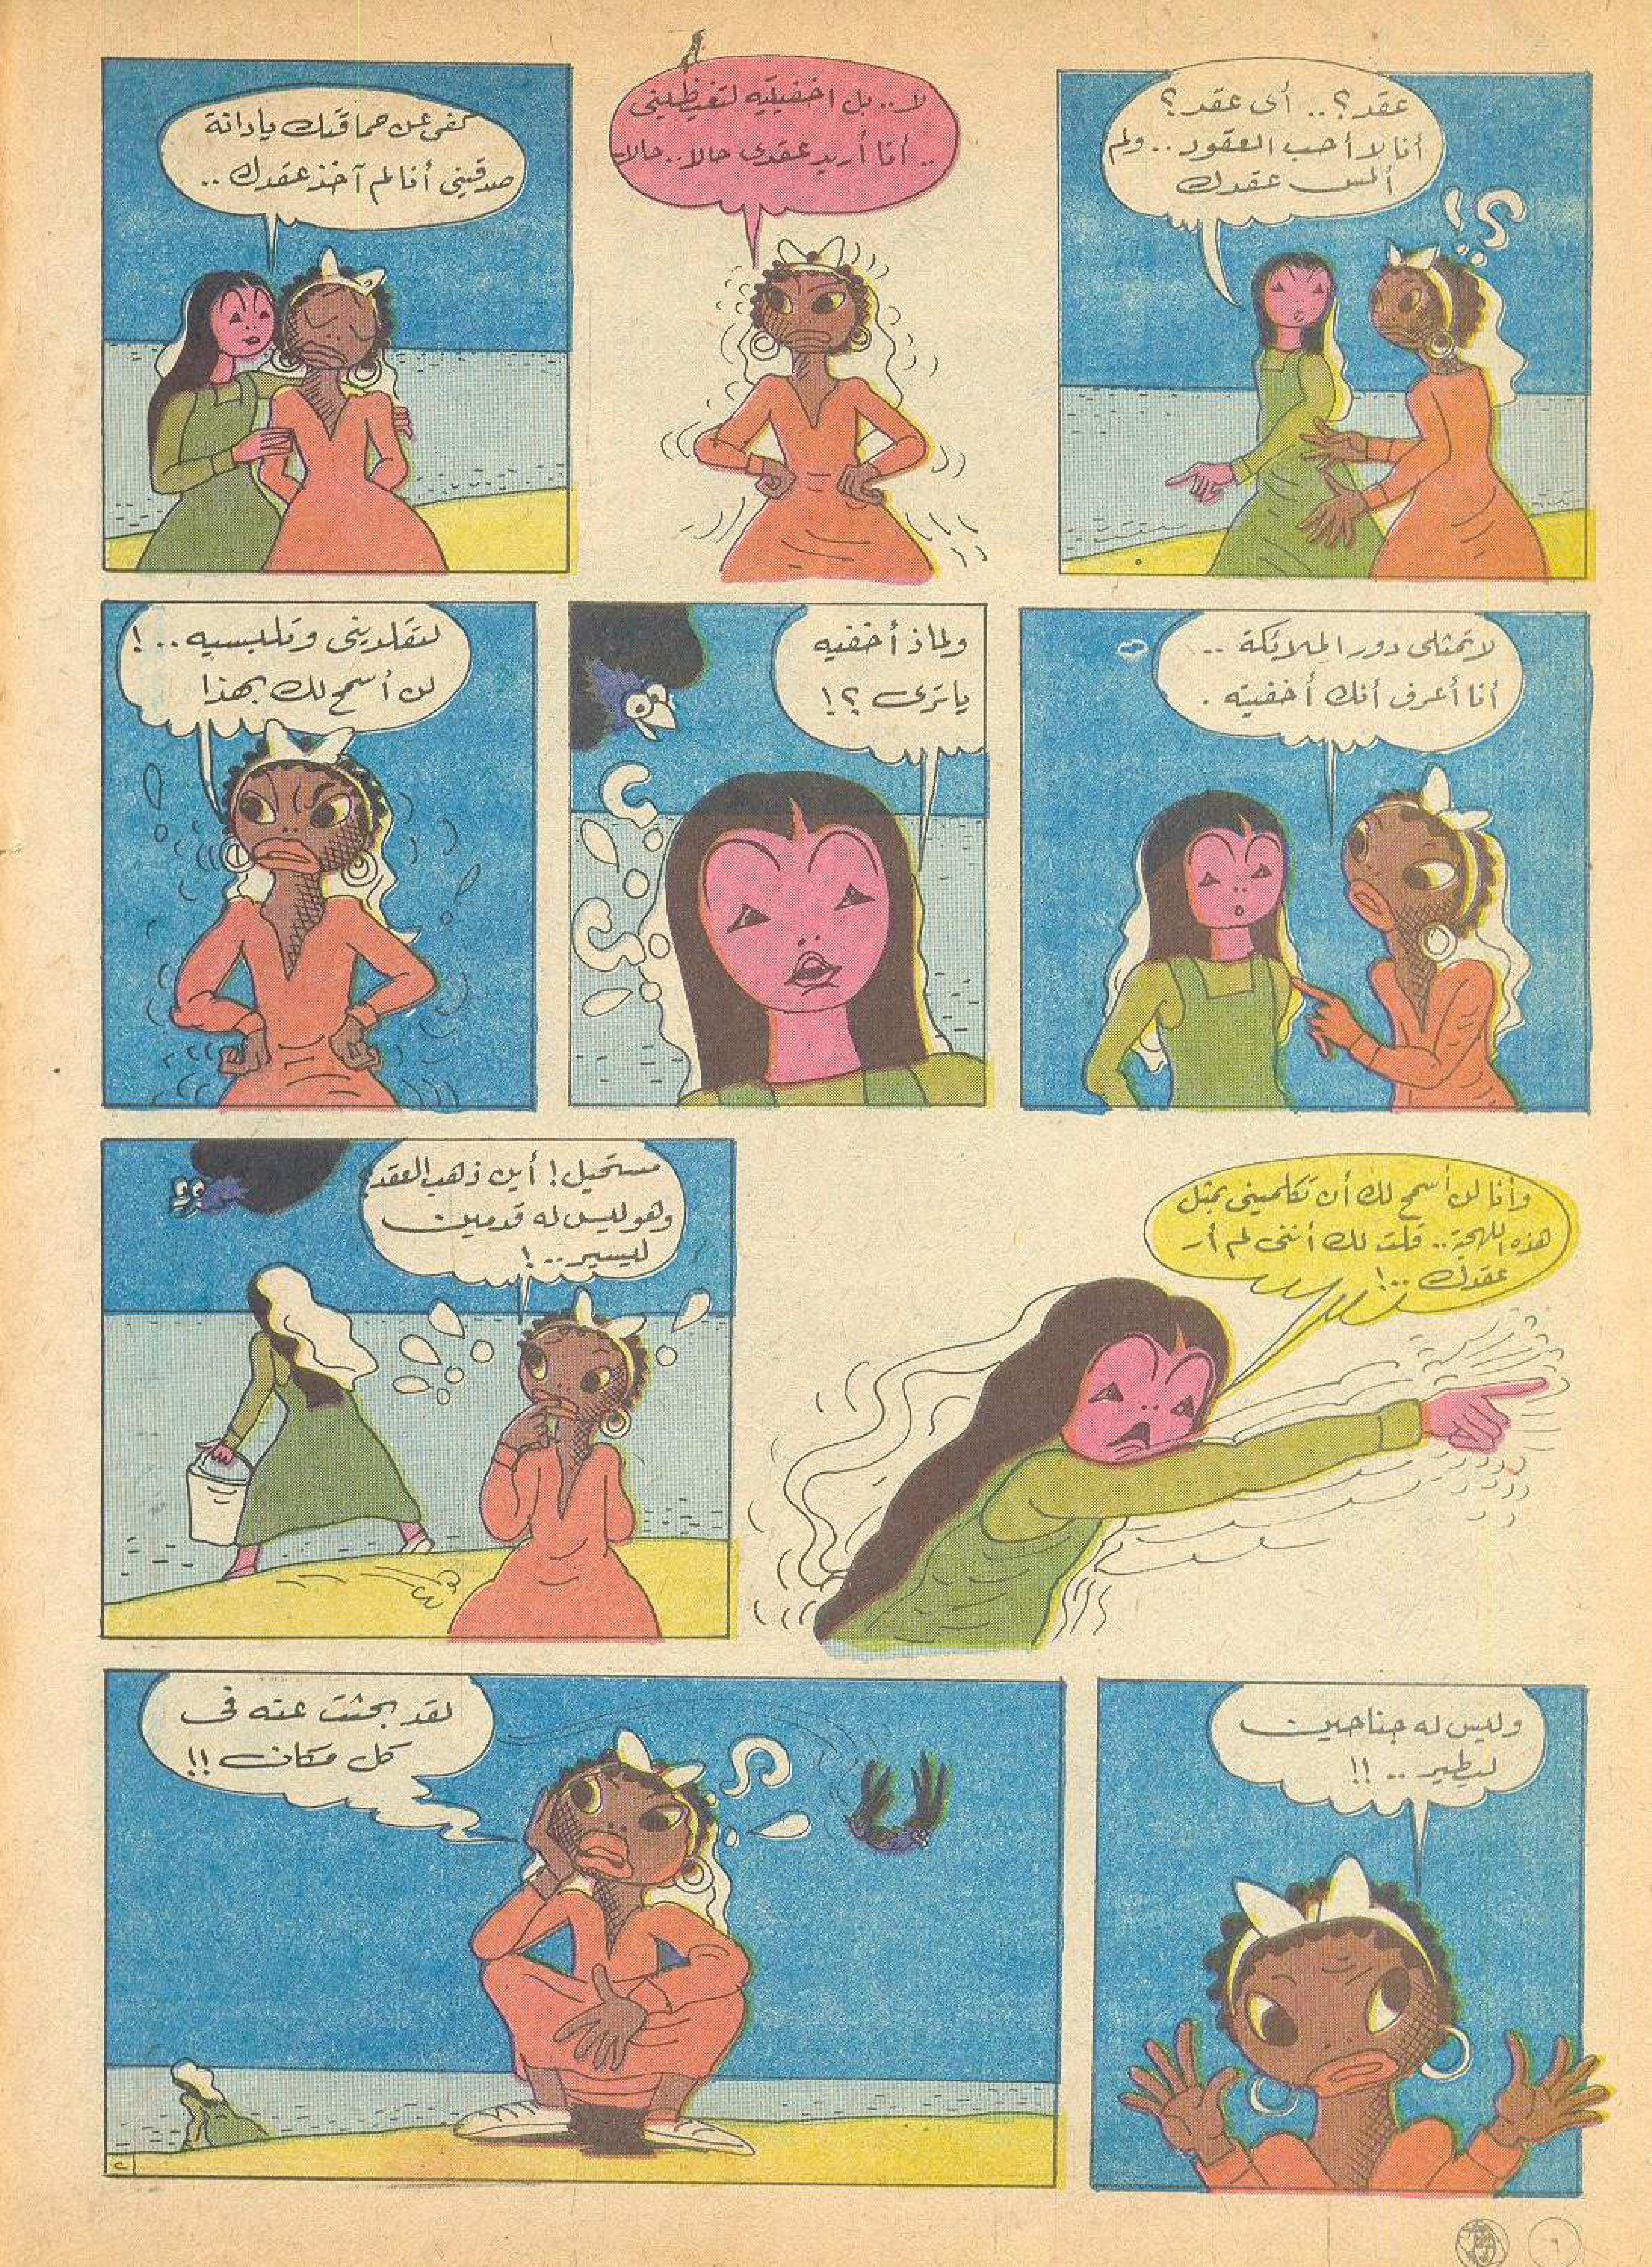 عقد؟.. أى عقد؟
أنا لا أحب العقود.. ولم
ألمس عقدك
لا.. بل اخفيتيه لتغيظينى
.. أنا أريد عقدى حالا.. حالا
كفى عن حماقتك يا دانة
صدقينى أنا لم آخذ عقدك..
لا تمثلى دور الملائكة ..
أنا أعرف أنك أخفيته .
ولماذ أخفيه
يا ترى ؟!
لتقلدينى وتلبسيه..!
لن أسمح لك بهذا
وأنا لن أسمح لك أن تكلمينى بمثل
هذه اللهجة.. قلت لك أننى لم أر
عقدك ..!
مستحيل! أين ذهب العقد
وهو ليس له قدمين
ليسير..!
وليس له جناحين
ليطير .. !!
لقد بحثت عنه فى
كل مكان !!
٢
٦